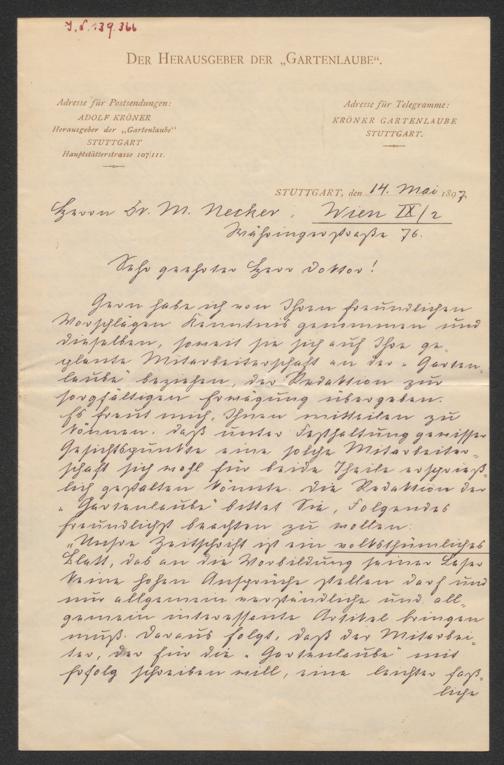 J.N. 139.366
DER HERAUSGEBER DER „GARTENLAUBE“.
Adresse für Postsendungen:
ADOLF KRÖNER
Herausgeber der „Gartenlaube“
STUTTGART
Hauptstätterstrasse 107/III.
Adresse für Telegramme:
KRÖNER GARTENLAUBE
STUTTGART.
STUTTGART, den 14. Mai 1897.
Herrn Dr. M. Necker. Wien IX/2
Währingerstraße 76.
Sehr geehrter Herr Doktor!
Gern habe ich von Ihren freundlichen
Vorschlägen Kenntnis genommen und
dieselben, soweit sie sich auf Ihre ge-
plante Mitarbeiterschaft an der „Garten
laube“ beziehen, der Redaktion zur
sorgfältigen Erwägung übergeben.
Es freut mich, Ihnen mitteilen zu
können, daß unter Festhaltung gewisser
Gesichtspunkte eine solche Mitarbeiter-
schaft sich wohl für beide Theile ersprieß-
lich gestalten könnte. Die Redaktion der
„Gartenlaube“ bittet Sie, Folgendes
freundlichst beachten zu wollen:
„Unsre Zeitschrift ist ein volksthümliches
Blatt, das an die Vorbildung seiner Leser
keine hohen Ansprüche stellen darf und
nur allgemein verständliche und all-
gemein interessante Artikel bringen
muß. Daraus folgt, daß der Mitarbei-
ter, der für die „Gartenlaube“ mit
Erfolg schreiben will, eine leichter faß-
liche